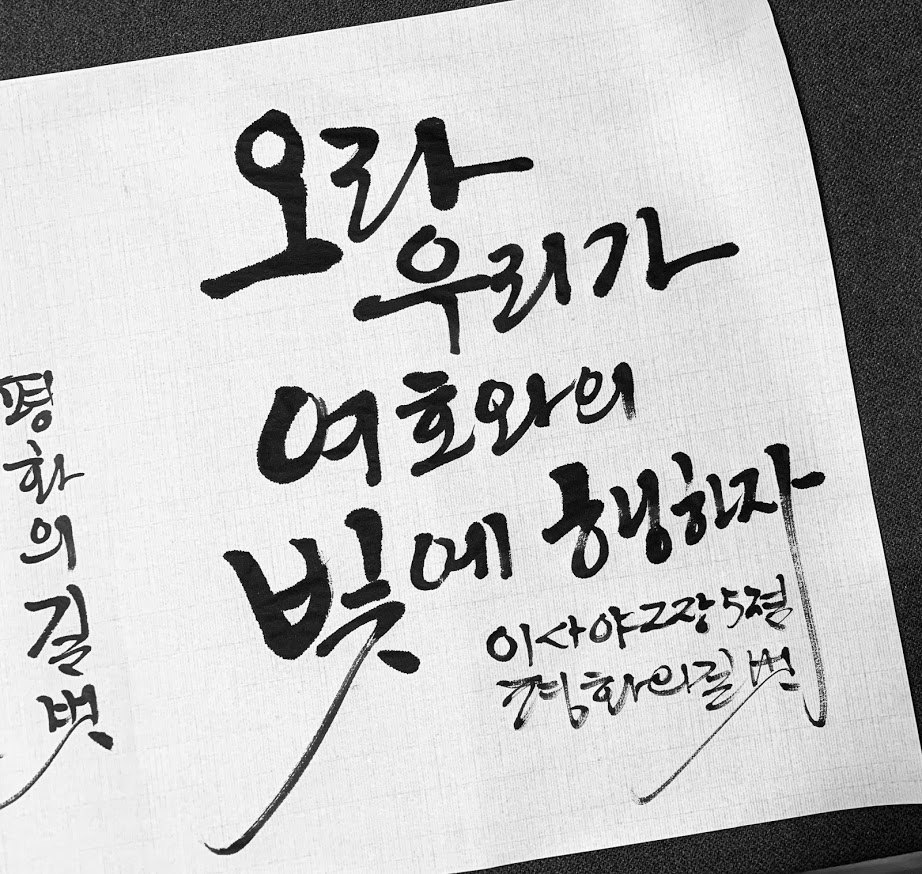 오라
우리가
여호와의
빛에 행하자
이사야 2장 5절
평화의길벗
평화의길벗